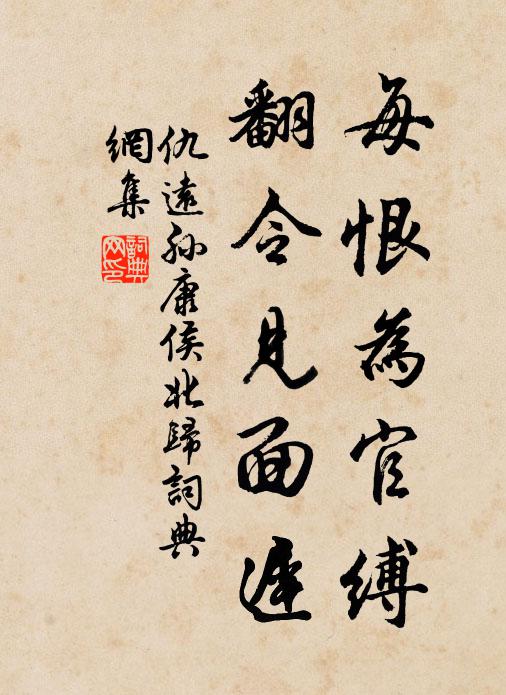 每恨為官縛
翻令見面遲
仇遠孫康侯北歸詞典
網集
詞典网印